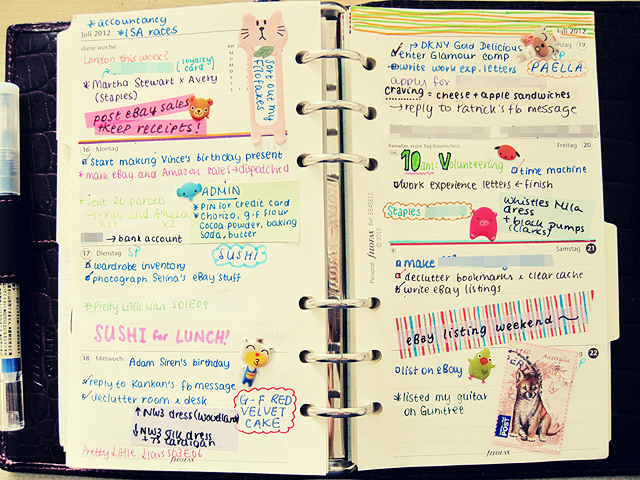 *accountancy
*ISA rates
Juli 2012
diese woche
London this week?
(loyalty card)
*Martha Stewart x Avery
(Staples)
post eBay sales
+keep receipts!
sort out my
Filofaxes
16 Montag
Start making Vince's birthday present
mark eBay and Amazon sales → dispatched
Sent 20 parcels
→ eBay and Amazon
x2
ADMIN
*PIN for credit card
*Chorizo, g-f flour
Cocoa powder, baking
Soda, butter
→ bank account
SUSHI
17 Dienstag SP
wardrobe inventory
photograph Selina's eBay stuff
*Pretty Little Liars S01E09
SUSHI for LUNCH!
18 Mittwoch
Adam Siren's birthday
reply to Kankan's fb message
declutter room & desk
↑ NW3 dress (Woodland)
↓ NW3 silk dress
+ TS cardigan
G-F RED
VELVET
CAKE
Pretty Little Liars S03E06
filofax
Juli 2012
19
→ DKNY Gold Delicious
enter Glamour comp
write work exp. letters
SP
PAELLA
apply for
craving = cheese + apple sandwiches
→ reply to Patrick's fb message
Freitag 20
10am: Volunteering
time machine
work experience letters ← finish
Staples
Whistles Mila
dress
+ black pumps
(Clarks)
Personal filofax © 2010 Ref. 6845812
Samstag 21
make
declutter bookmarks & clear cache
write eBay listings
eBay listing weekend ~
22
SP
list on eBay
*listed my guitar
on Gumtree
Australia
INTERNATIONAL
POST
filofax